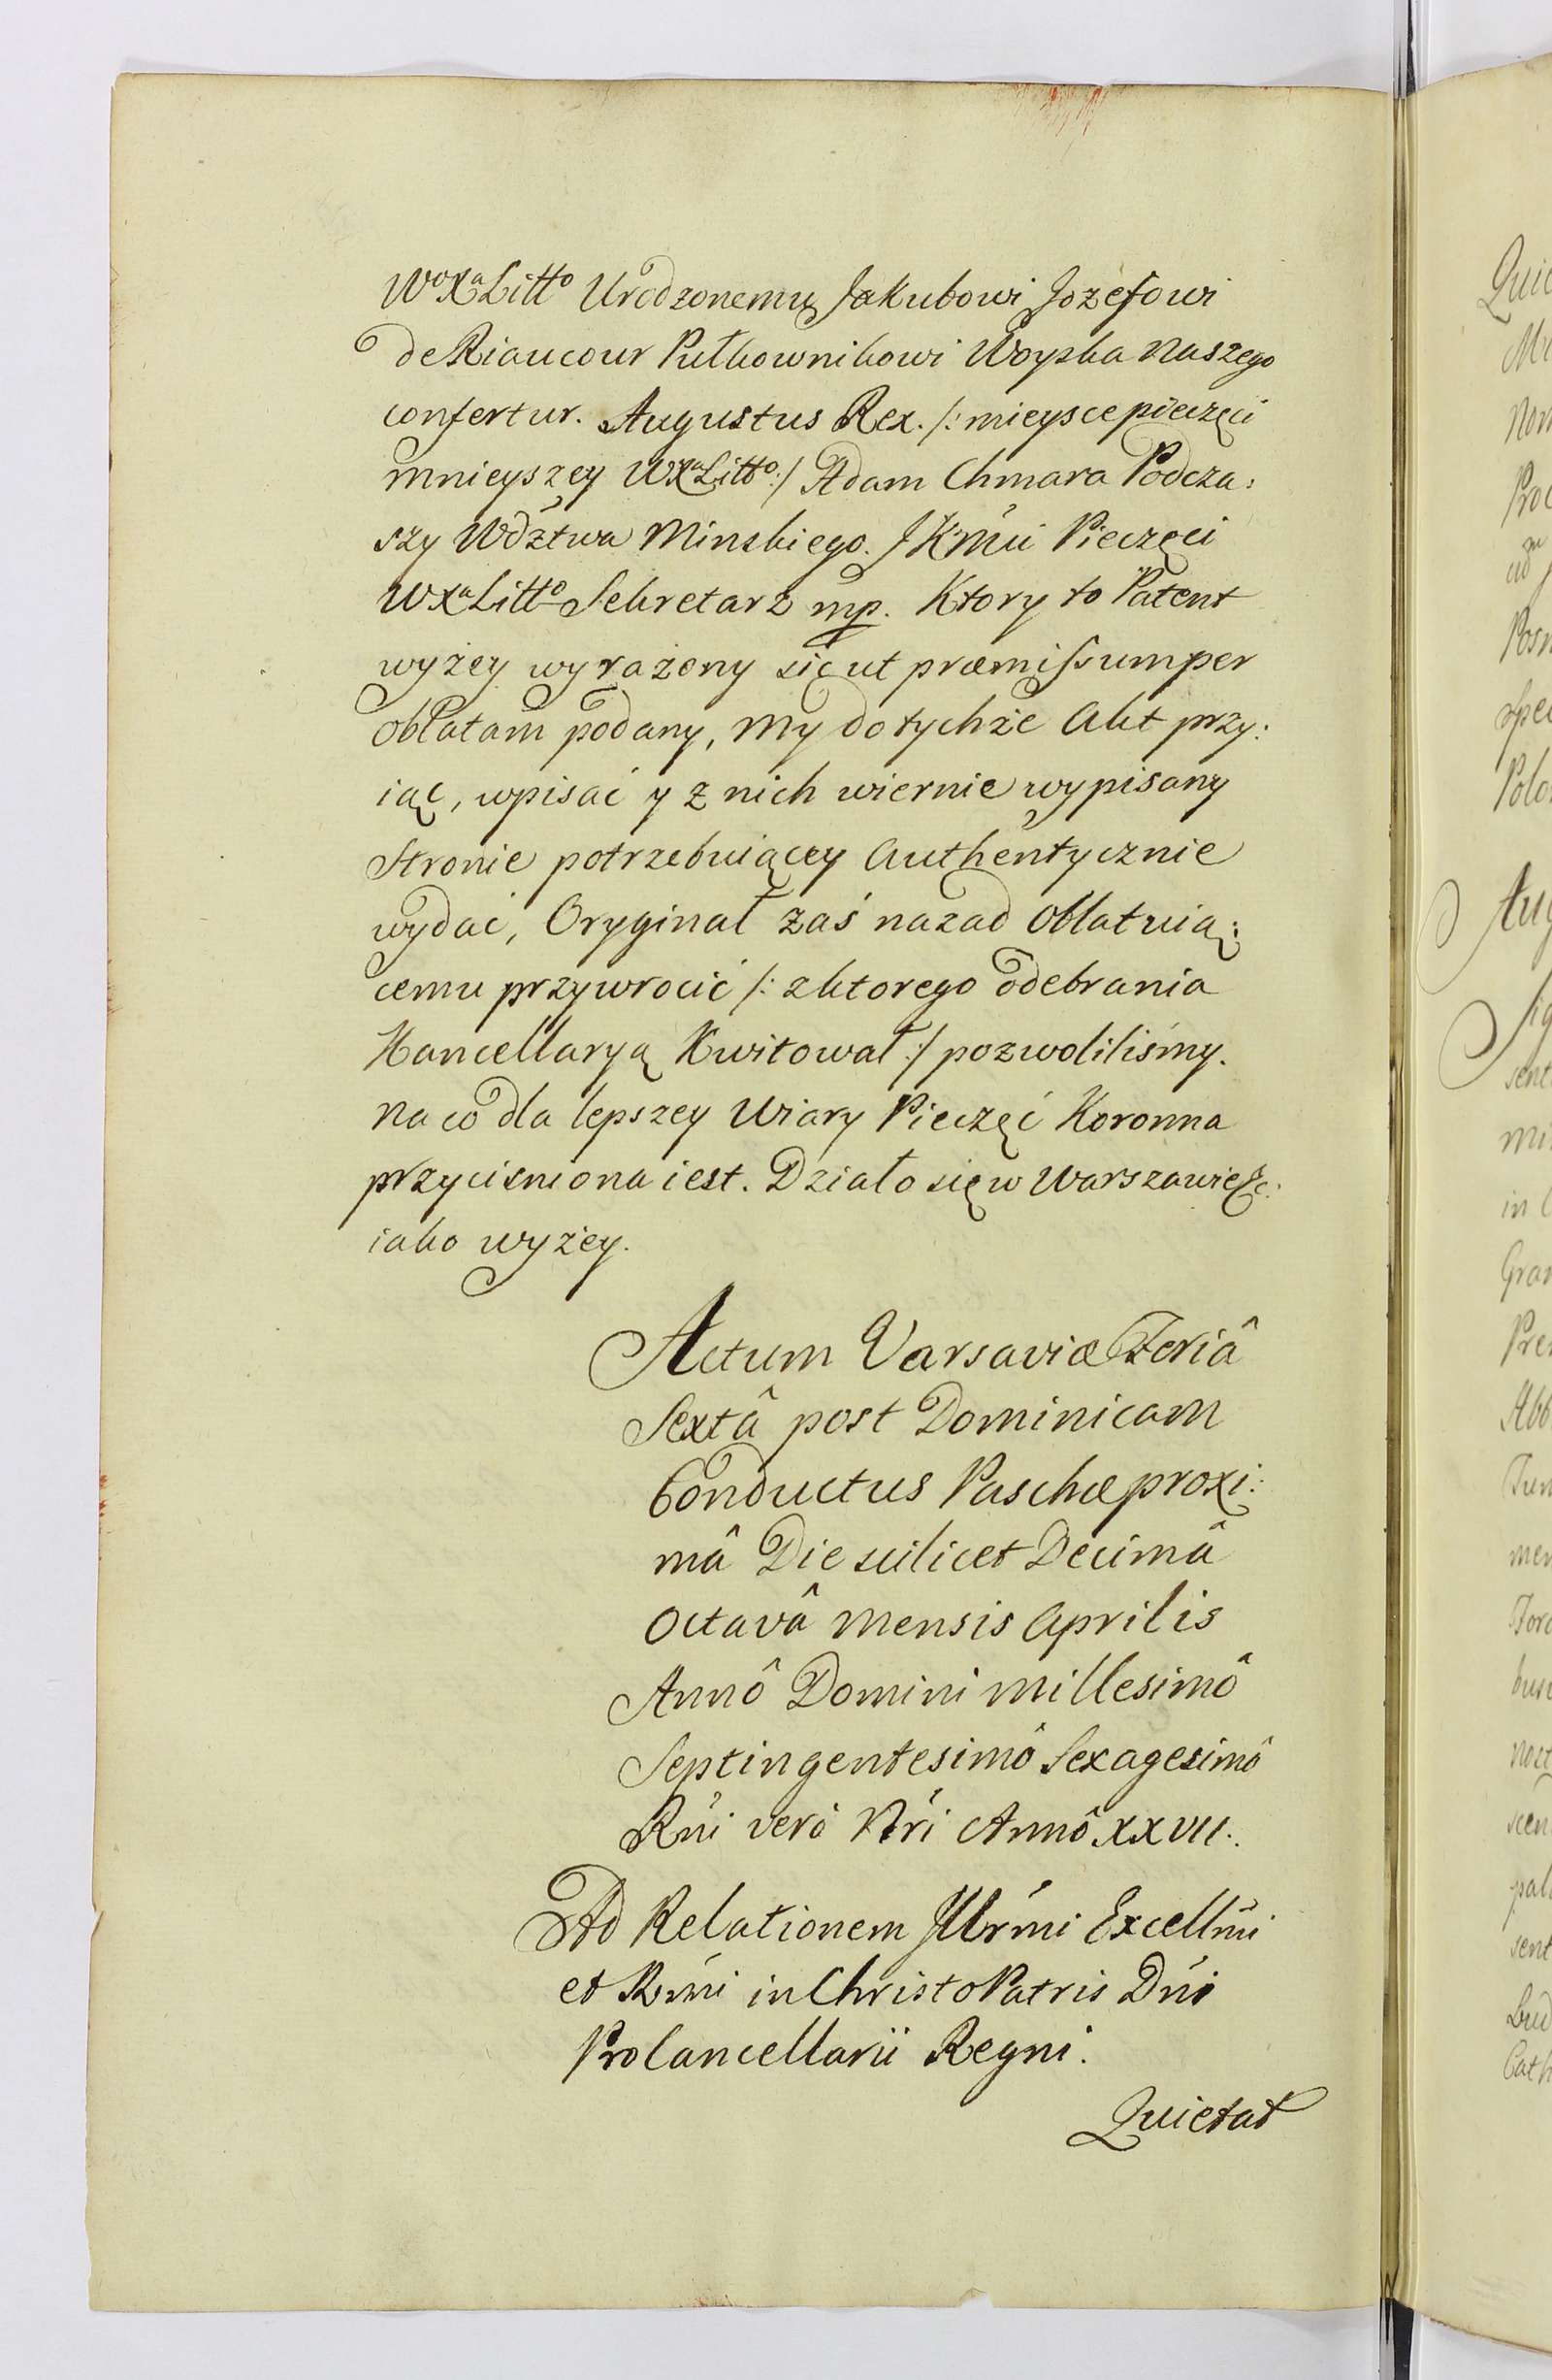 WoXaLitto Urodzonemu Jakubowi Jozefowi
de Riaucour Pułkownikowi Woyska Naszego
confertur. Augustus Rex. /: mieysce pieczęci
mnieyszey WXaLitto:/ Adam Chmara Podcza:
szy Wdztwa Minskiego. JKMci Pieczęci
WXaLitto Sekretarz mp. Ktory to Patent
wyżey wyrażony sicut præmissum per
Oblatam podany, My do tychże Akt przy:
iąć, wpisać y z nich wiernie wypisany
Stronie potrzebuiącey Authentycznie
wydać, Oryginał zaś nazad Oblatuią:
cemu przywrocić /: z ktorego odebrania
Kancellaryą Kwitował :/ pozwoliliśmy.
Na co dla lepszey Wiary Pieczęć Koronna
przyciśniona iest. Działo się w Warszawie &c:
iako wyżey.
Actum Varsaviæ Feriâ
Sextâ post Dominicam
Conductus Paschæ proxi:
mâ Die scilicet Decimâ
Octavâ Mensis Aprilis
Annô Domini Millesimô
Septingentesimô Sexagesimô
Rñi verò Ñri Annô XXVII.
Ad Relationem Jllrmi Excellmi
et Rmi in Christo Patris Dñi
ProCancellarii Regni.
Quietat